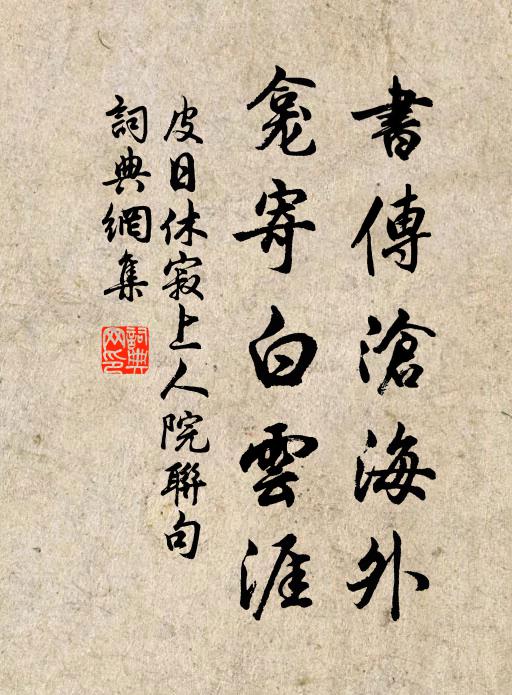 書傳滄海外
龕寄白雲涯
皮日休寂上人院聯句
詞典網集
詞典網印